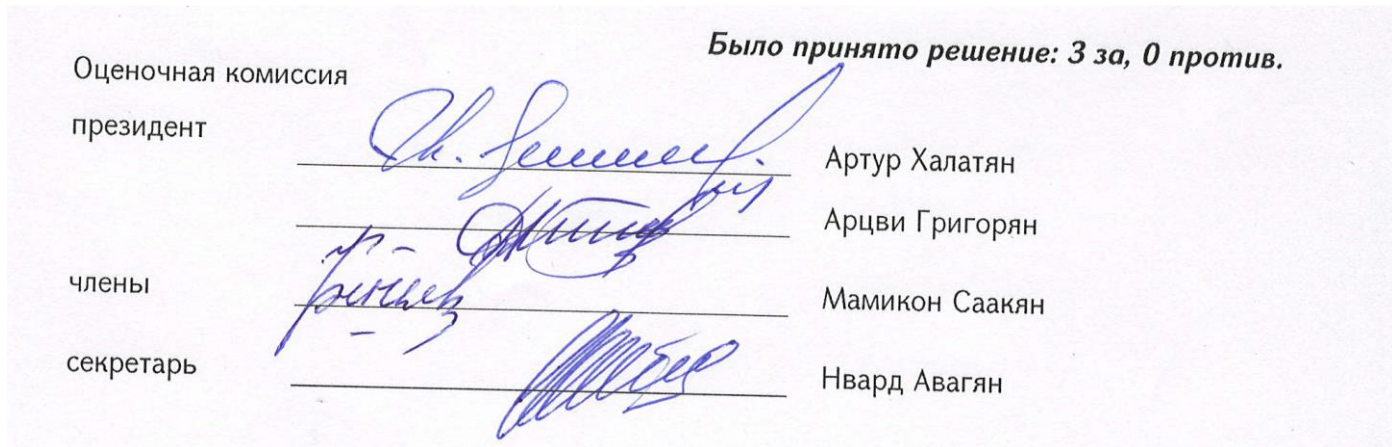 Было принято решение: 3 за, 0 против.
Оценочная комиссия
президент
Артур Халатян
Арцви Григорян
члены
Мамикон Саакян
секретарь
Нвард Авагян